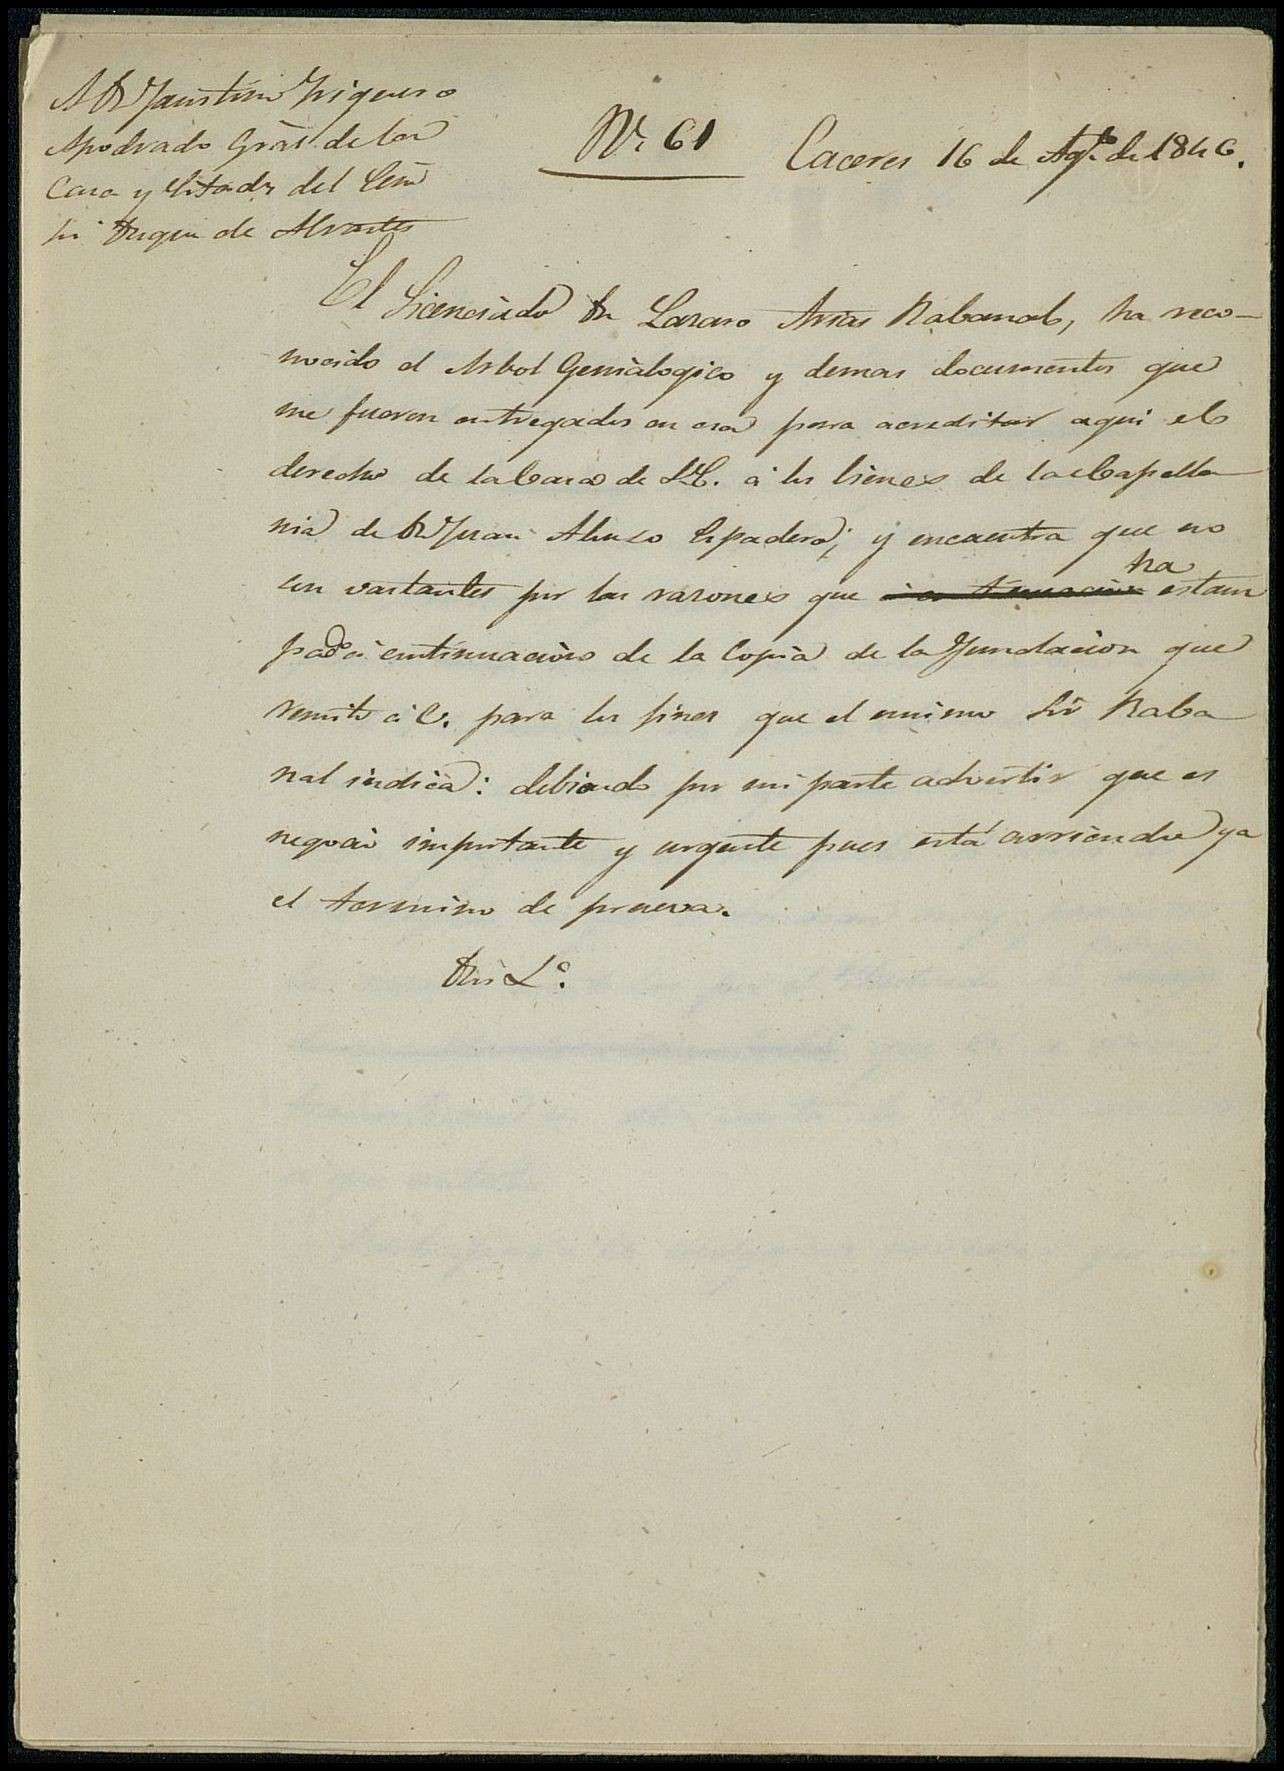 A Dn Faustino Figueroa
Apodrado Gral de la
Casa y Estads del Exmo
Sr Duque de Abrantes
N. 61
Caceres 16 de Agto de 1846.
El Licenciado Dn Lazaro Arias Rabanal, ha reco-
nocido el Arbol Genialogico y demas documentos que
me fueron entregados en esa para acreditar aqui el
derecho de la Casa de S.E. á los bienes de la Capella
nia de Dn Juan Alonso Espadero; y encuentra que no
son vastantes por las razones que ha estam
pado á continuacion de la Copia de la Fundacion que
remito á V. para los fines que el mismo Sor Raba
nal indica: debiendo por mi parte advertir que es
negocio importante y urgente pues está corriendo ya
el termino de prueva.
Dios Lo.